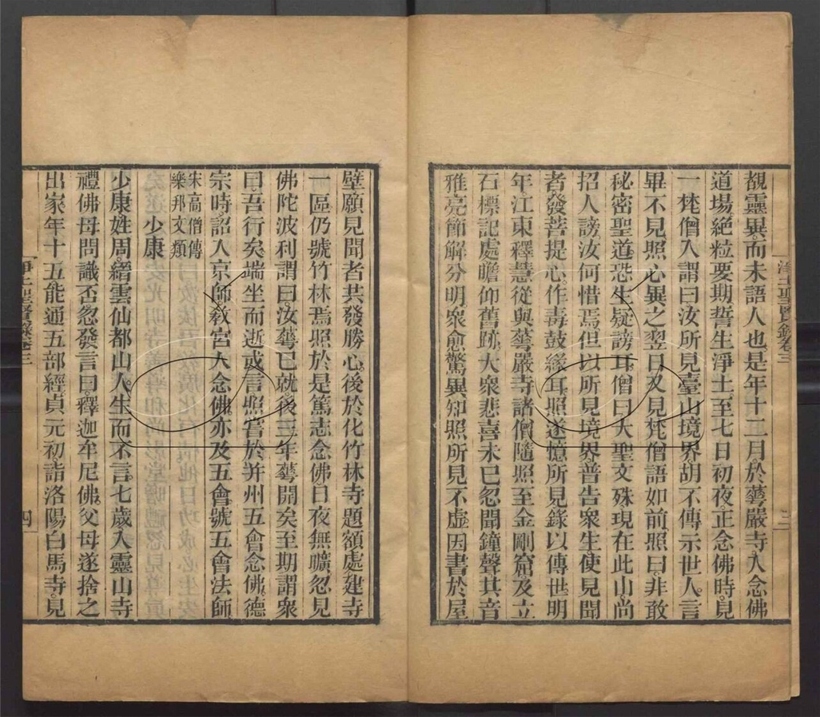 覩靈異而未語人也是年十二月於華嚴寺入念佛
道場絕粒要期誓生淨土至七日初夜正念佛時見
一梵僧入謂曰汝所見臺山境界胡不傳示世人言
畢不見照心異之翌日又見梵僧語如前照曰非敢
秘密聖道恐生疑謗耳僧曰大聖文殊現在此山尚
招人謗汝何惜焉但以所見境界普告眾生使見聞
者發菩提心作毒鼓緣耳照遂憶所見錄以傳世明
年江東釋慧從與華嚴寺諸僧隨照至金剛窟及立
石標記處瞻仰舊跡大眾悲喜未已忽聞鐘聲其音
雅亮節解分明眾愈驚異知照所見不虛因書於屋
淨土聖賢錄卷三
三
壁願見聞者共發勝心後於化竹林寺題額處建寺
一區仍號竹林焉照於是篤志念佛日夜無曠忽見
佛陀波利謂曰汝華已就後三年華開矣至期謂眾
曰吾行矣端坐而逝或言照嘗於并州五會念佛德
宗時詔入京師教宮人念佛亦及五會號五會法師
宋高僧傳
樂邦文類
少康
少康姓周縉雲仙都山人生而不言七歲入靈山寺
禮佛母問識否忽發言曰釋迦牟尼佛父母遂捨之
出家年十五能通五部經貞元初詣洛陽白馬寺見
淨土聖賢錄卷三
四